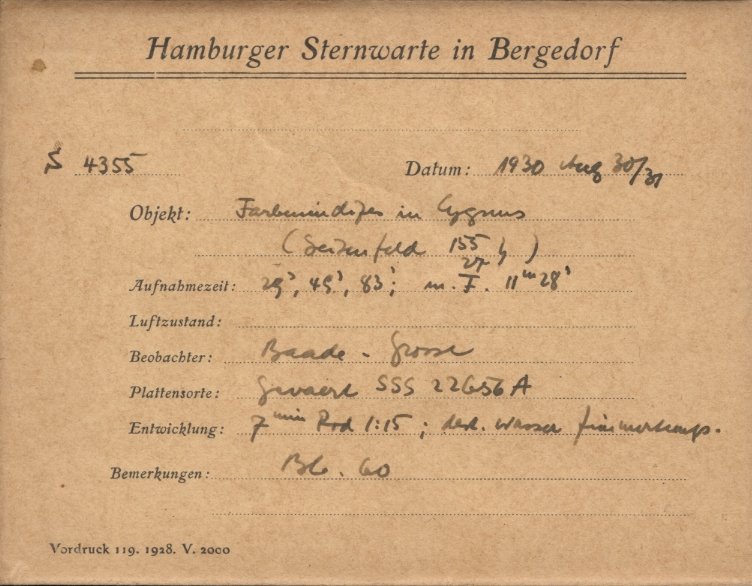 Hamburger Sternwarte in Bergedorf
S 4355 Datum: 1930 Aug 30/31
Objekt: Farbenindizes in Cygnus
(Seitenfeld 155 27 h)
Aufnahmezeit: 29ˢ, 49ˢ, 83ˢ; m. F. 11ᵐ 28ˢ
Luftzustand:
Beobachter: Baade - Grosse
Plattensorte: Gevaert SSS 22656 A
Entwicklung: 7 min Rod 1:15; dest. Wasser Zimmertemp.
Bemerkungen: Bl. 60
Vordruck 119. 1928. V. 2000